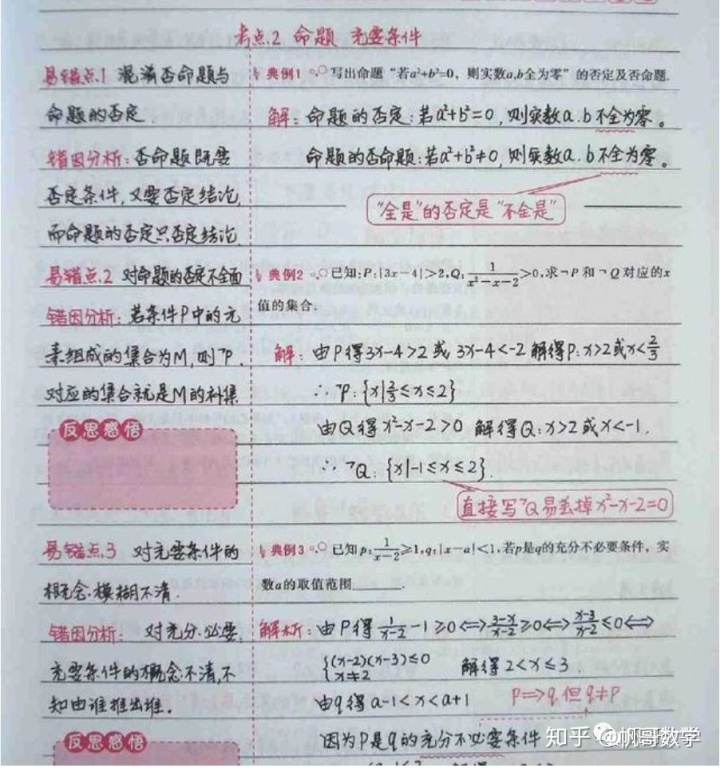 考点2 命题 充要条件
易错点1 混淆否命题与
命题的否定
错因分析：否命题既要
否定条件，又要否定结论，
而命题的否定只否定结论
典例1 写出命题“若a²+b²=0，则实数a,b全为零”的否定及否命题.
解：命题的否定：若a²+b²=0，则实数a.b不全为零。
命题的否命题：若a²+b²≠0，则实数a.b不全为零。
“全是”的否定是“不全是”
易错点2 对命题的否定不全面
错因分析：若条件P中的元
素组成的集合为M，则¬P
对应的集合就是M的补集
反思感悟
典例2 已知:P:|3x-4|>2,Q:1/(x²-x-2)>0,求¬P和¬Q对应的x
值的集合.
解：由P得3x-4>2或3x-4<-2 解得P:x>2或x<2/3
∴¬P:{x|2/3≤x≤2}
由Q得x²-x-2>0 解得Q:x>2或x<-1.
∴¬Q:{x|-1≤x≤2}
直接写¬Q易丢掉x²-x-2=0
易错点3 对充要条件的
概念模糊不清.
错因分析：对充分.必要,
充要条件的概念不清,不
知由谁推出谁.
反思感悟
典例3 已知p:1/(x-2)≥1,q:|x-a|<1,若p是q的充分不必要条件，实
数a的取值范围______.
解析：由P得1/(x-2)-1≥0⟺(3-x)/(x-2)≥0⟺(x-3)/(x-2)≤0⟺
{(x-2)(x-3)≤0
x≠2
解得2<x≤3
由q得a-1<x<a+1
P⇒q但q⇏P
因为P是q的充分不必要条件
知乎 @帆哥数学